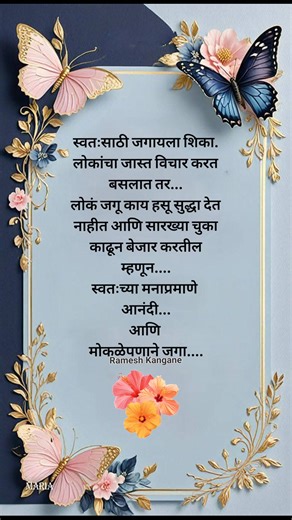 स्वतःसाठी जगायला शिका.
लोकांचा जास्त विचार करत
बसलात तर...
लोकं जगू काय हसू सुद्धा देत
नाहीत आणि सारख्या चुका
काढून बेजार करतील
म्हणून....
स्वतःच्या मनाप्रमाणे
आनंदी...
आणि
मोकळेपणाने जगा....
Ramesh Kangane
MARIA